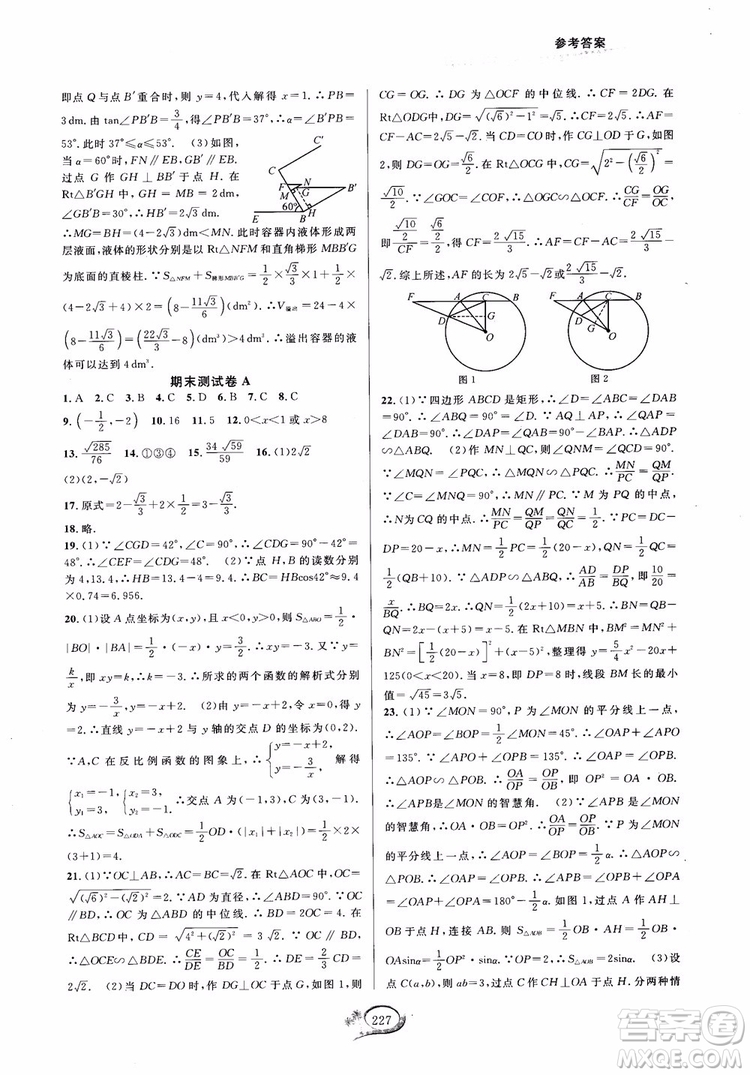 参考答案
即点 Q 与点 B′重合时，则 y=4，代入解得 x=1. ∴PB=
3 dm. 由 tan∠PB′B=3/4，得∠PB′B=37°. ∴∠α=∠B′PB=
53°. 此时 37°≤α≤53°. (3)如图，
当 α=60°时，FN∥EB，GB′∥EB.
过点 G 作 GH⊥BB′于点 H. 在
Rt△B′GH 中，GH=MB=2 dm，
∠GB′B=30°，∴HB′=2√3 dm.
∴MG=BH=(4-2√3)dm. 此时容器内液体形成两
层液面，液体的形状分别是以 Rt△NFM 和直角梯形 MBB′G
为底面的直棱柱. ∵S△NFM+S梯形MBB′G=1/2×√3/3×1+1/2×
(4-2√3+4)×2=(8-11√3/6)(dm²). ∴V溢出=24-4×
(8-11√3/6)=(22√3/3-8)(dm³). ∴溢出容器的液
体可以达到 4 dm³.
期末测试卷 A
1. A 2. C 3. A 4. D 5. D 6. C 7. C 8. C
9. (-1/2,-2) 10. 16 11. 2 12. 0<x<1 或 x>8
13. √285/76 14. ①③④ 15. 34√59/59 16. (1)2√2
(2)(2,-√2)
17. 原式=2-√3/3+2×√3/3=2+√3/3.
18. 略.
19. (1)∵∠CGD=42°，∠C=90°，∴∠CDG=90°-42°=
48°. ∴∠CEF=∠CDG=48°. (2)∵点 H、B 的读数分别
为 4,13.4，∴HB=13.4-4=9.4. ∴BC=HBcos42°≈9.4
×0.74=6.956.
20. (1)设 A 点坐标为(x,y)，且 x<0,y>0，则 S△ABO=1/2·
|BO|·|BA|=1/2·(-x)·y=3/2. ∴xy=-3. 又∵y=
k/x，即 xy=k，∴k=-3. ∴所求的两个函数的解析式分别
为 y=-3/x，y=-x+2. (2)由 y=-x+2，令 x=0，得
y=2. ∴直线 y=-x+2 与 y 轴的交点 D 的坐标为(0,2).
∵A,C 在反比例函数的图象上，∴{y=-x+2, y=-3/x. 解得
{x₁=-1, y₁=3; {x₂=3, y₂=-1. ∴交点 A 为(-1,3)，C 为(3,-1).
∴S△AOC=S△AOD+S△ODC=1/2OD·(|x₁|+|x₂|)=1/2×2×
(3+1)=4.
21. (1)∵OC⊥AB，∴AC=BC=2√2. 在 Rt△AOC 中，OC=
√((√6)²-(√2)²)=2. ∵AD 为直径，∴∠ABD=90°. ∴OC∥
BD，∴OC 为△ABD 的中位线. ∴BD=2OC=4. 在
Rt△BCD 中，CD=√(4²+(√2)²)=3√2. ∵OC∥BD，
∴△OCE∽△DBE. ∴CE/DE=OC/BD=2/4=1/2. ∴DE=2/3CD=
2√2. (2)当 DC=DO 时，作 DG⊥OC 于点 G，如图 1，则
CG=OG. ∴DG 为△OCF 的中位线. ∴CF=2DG. 在
Rt△ODG 中，DG=√((√6)²-1²)=√5. ∴CF=2√5. ∴AF=
CF-AC=2√5-√2. 当 CD=CO 时，作 CG⊥OD 于 G，如图
2，则 DG=OG=√6/2. 在 Rt△OCG 中，CG=√(2²-(√6/2)²)=
√10/2. ∵∠GOC=∠COF，∴△OGC∽△OCF. ∴CG/CF=OG/OC，
即 (√10/2)/CF=(√6/2)/2. ∴CF=2√15/3. ∴AF=CF-AC=2√15/3-
√2. 综上所述，AF 的长为 2√5-√2 或 2√15/3-√2.
图 1
图 2
22. (1)∵四边形 ABCD 是矩形，∴∠BAD=∠ABC=
90°. ∴∠ABQ=90°=∠D. ∵AQ⊥AP，∴∠QAP=
∠BAD=90°. ∴∠QAB=∠PAD. ∴△ADP∽△ABQ.
(2)作 MN⊥QC，则∠QNM=∠QCD=90°. 又
∵∠MQN=∠PQC，∴△MQN∽△PQC. ∴MN/PC=QM/QP
=QN/QC. ∵∠QNM=90°，∴MN∥PC. ∵M 为 PQ 的中点，
∴N 为 CQ 的中点. ∴MN/PC=QM/QP=QN/QC=1/2. ∵PC=DC-
DP=20-x，∴MN=1/2(20-x). ∵QN=1/2QC=
1/2(BC+QB)=1/2(10+QB). ∵△ADP∽△ABQ，∴AD/AB=DP/BQ=
x/BQ. ∴BQ=2x. ∴QN=1/2(2x+10)=x+5. ∴BN=
QB-QN=x-5. 在 Rt△MBN 中，BM²=MN²+
BN²=[1/2(20-x)]²+(x-5)²，整理得 y=5/4x²-20x+
125(0<x<20). (3)当 x=8，即 DP=8 时，线段 BM 长的最小
值=√45=3√5.
23. (1)∵∠MON=90°，P 为∠MON 的平分线上一点，
∴∠AOP=∠BOP=1/2∠MON=45°. ∴∠OAP+∠APO
=135°. ∵∠APB=135°，∴∠APO+∠OPB=135°. ∴∠OAP=∠OPB.
∴△AOP∽△POB. ∴OA/OP=OP/OB，即 OP²=OA·OB.
∴∠APB是∠MON 的智慧角. (2)∵∠APB 是∠MON
的智慧角，∴OA·OB=OP²，∴OA/OP=OP/OB. ∵P 为∠MON
的平分线上一点，∴∠AOP=∠BOP=1/2α. ∴△AOP∽
△POB. ∴∠OAP=∠OPB. ∴∠APB=∠OPB+∠OPA=
∠OAP+∠OPA=180°-1/2α. 如图 1，过点 A 作 AH⊥
OB 于点 H，连接 AB. ∴S△AOB=1/2OB·AH=1/2OB·
OAsinα=1/2OP²·sinα. ∵OP=2，∴S△AOB=2sinα. (3)设
点 C(a,b)，则 ab=3，过点 C 作 CH⊥OA 于点 H. 分两种情
227